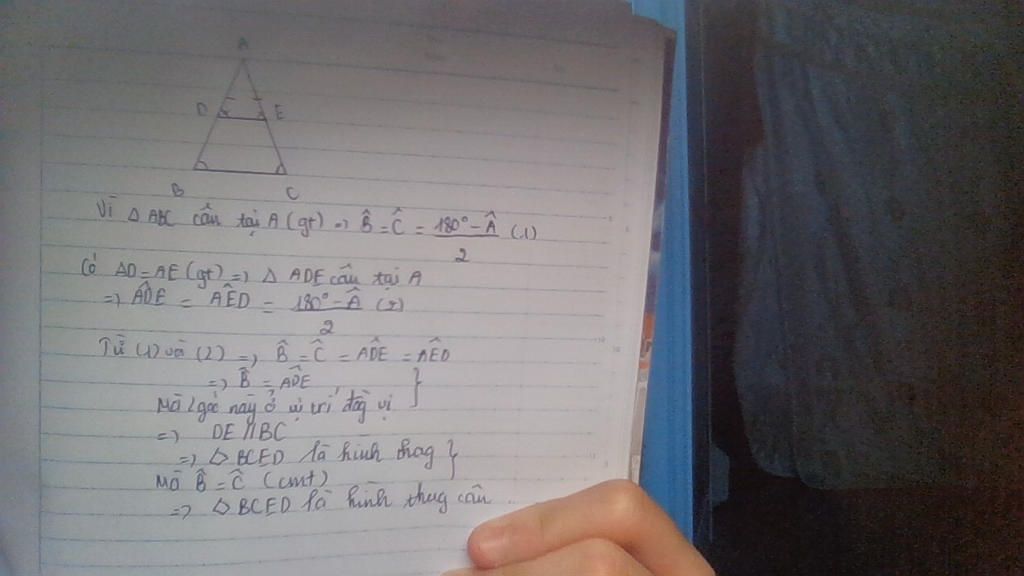 A
D E
B C
Vì △ ABC cân tại A (gt) => B̂ = Ĉ = (180° - Â)/2 (1)
Có AD = AE (gt) => △ ADE cân tại A
=> AD̂E = AÊD = (180° - Â)/2 (2)
Từ (1) và (2) => B̂ = Ĉ = AD̂E = AÊD
=> B̂ = AD̂E }
Mà 2 góc này ở vị trí đồg vị
=> DE // BC
=> ◇ BCED là hình thag }
Mà B̂ = Ĉ (cmt)
=> ◇ BCED là hình thag cân